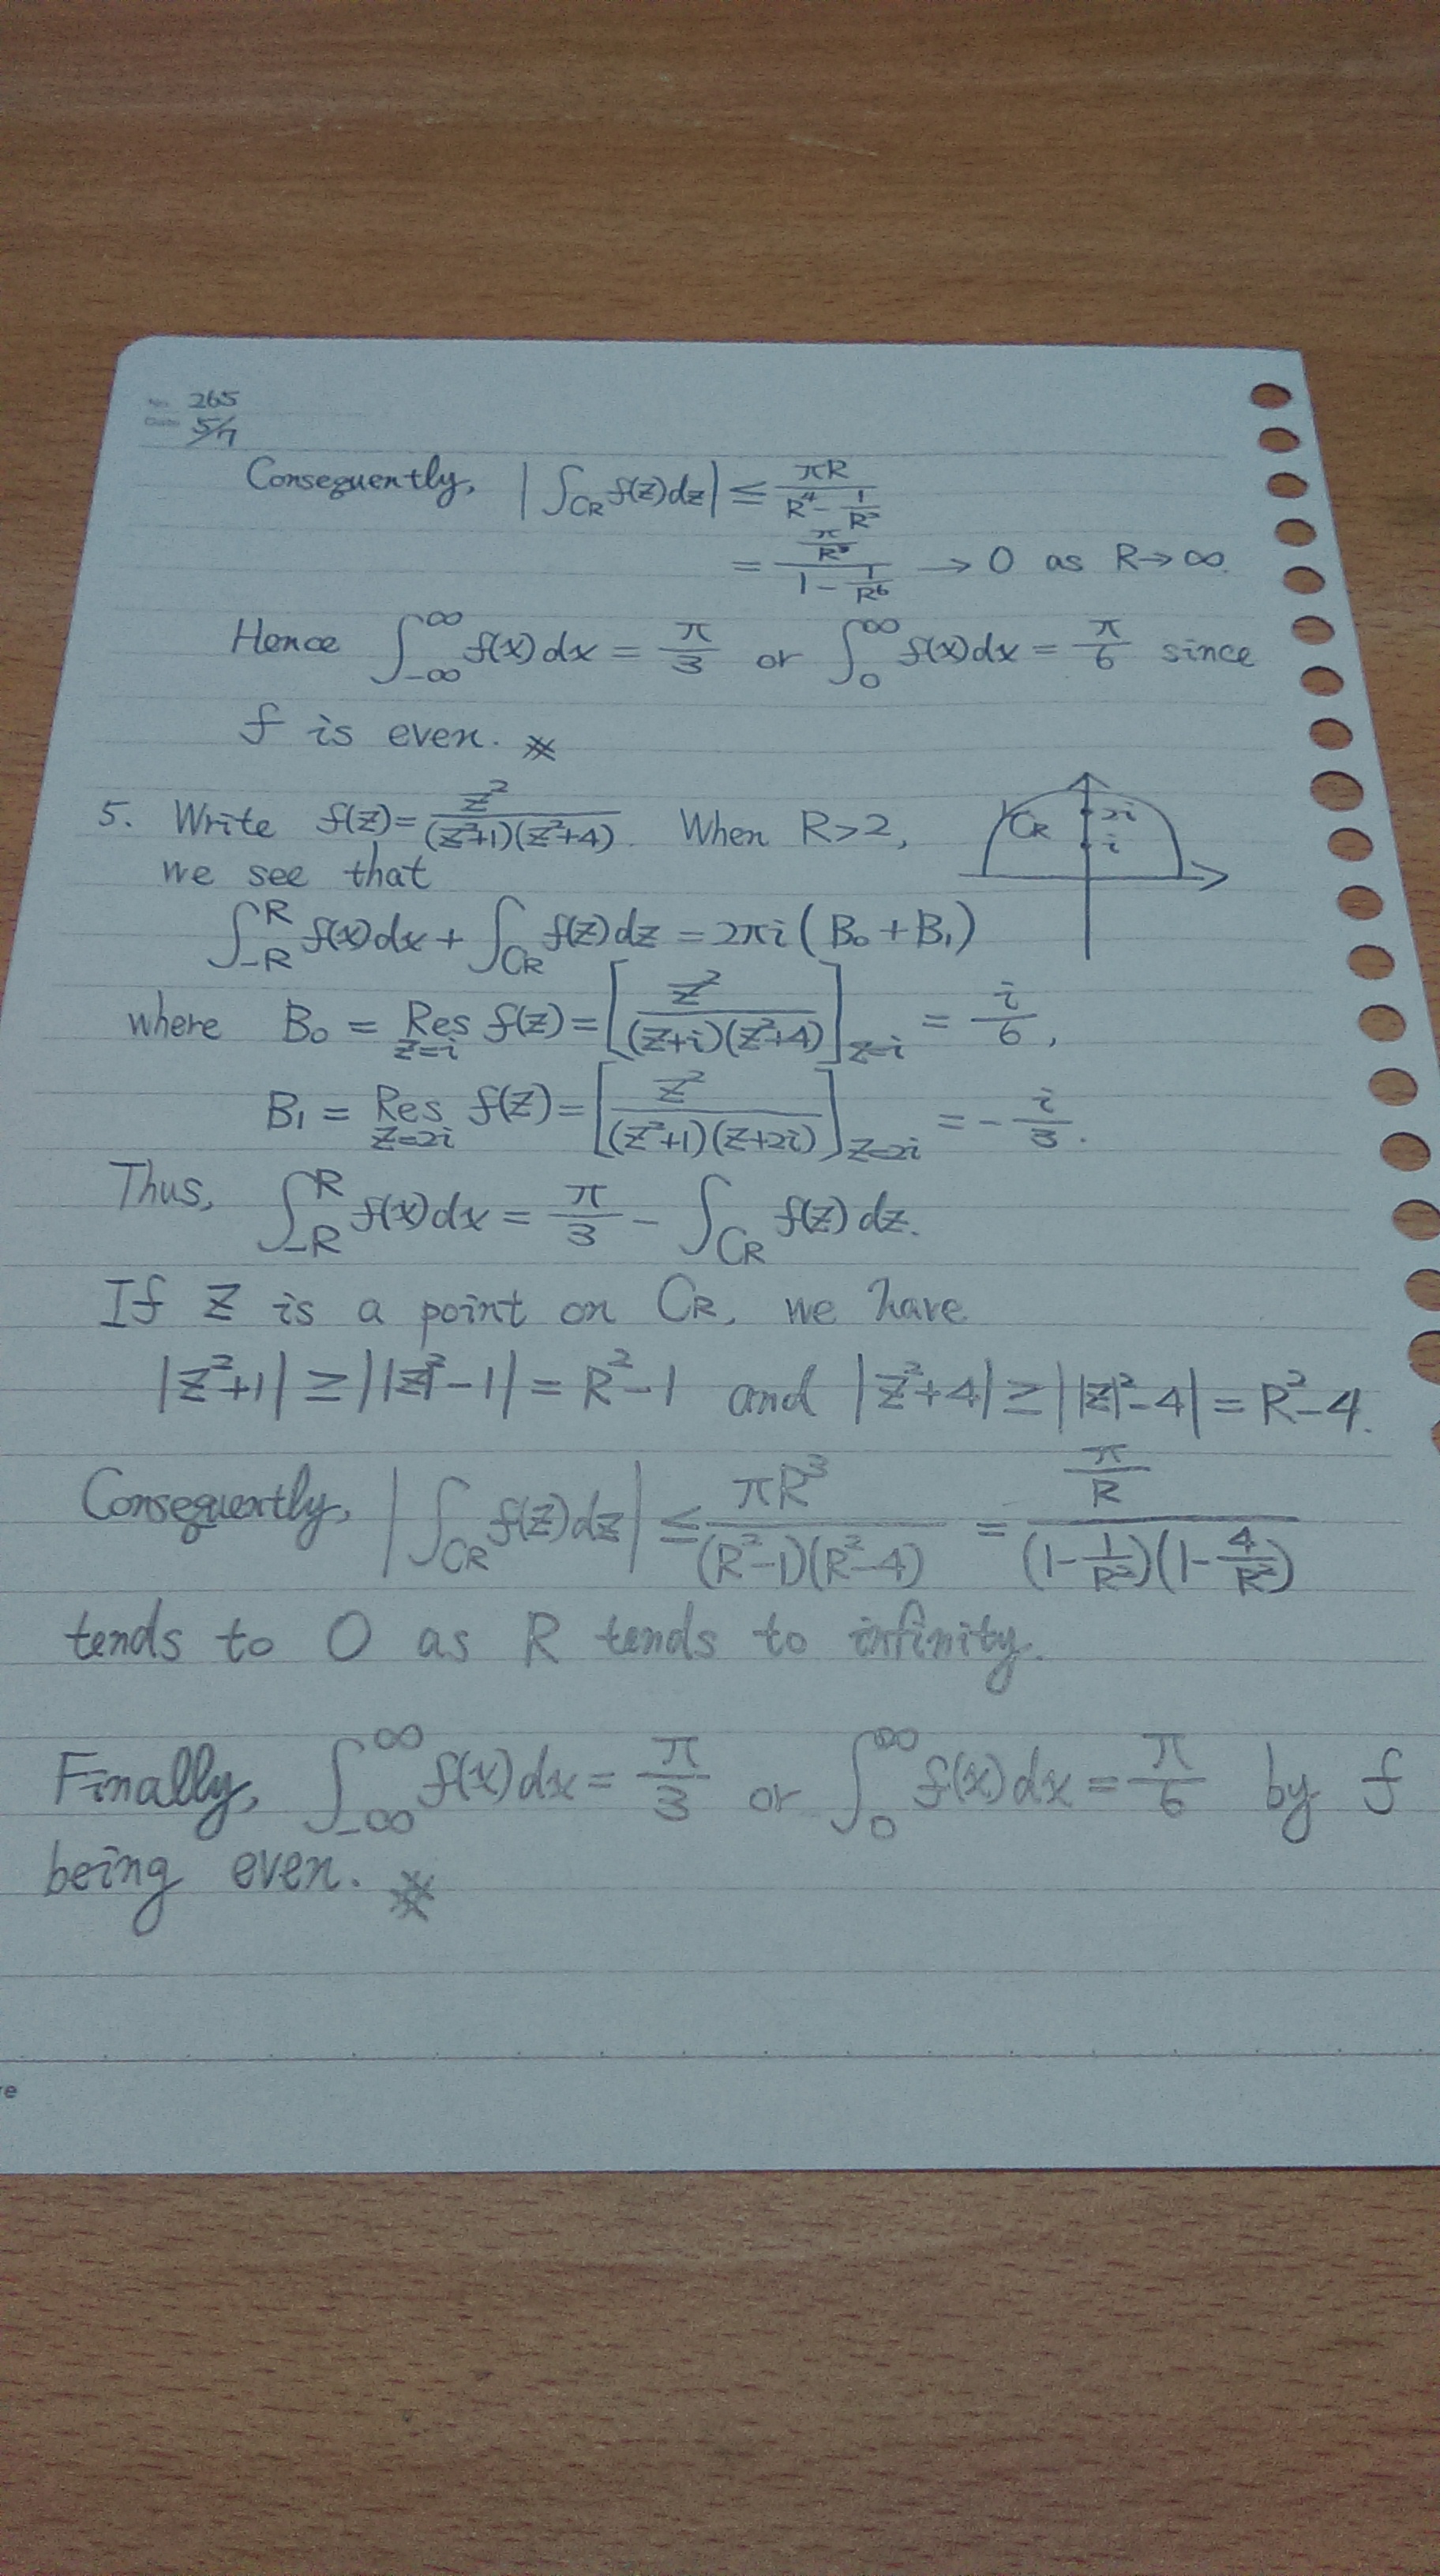 No. 265
Date 5/7
Consequently, |∫_{C_R} f(z)dz| ≤ \frac{πR}{R^4 - \frac{1}{R^2}}
= \frac{\frac{π}{R^3}}{1 - \frac{1}{R^6}} → 0 as R→∞.
Hence ∫_{-∞}^{∞} f(x)dx = \frac{π}{3} or ∫_0^∞ f(x)dx = \frac{π}{6} since
f is even. ※
5. Write f(z) = \frac{z^2}{(z^2+1)(z^2+4)}. When R>2,
C_R 2i i
we see that
∫_{-R}^{R} f(x)dx + ∫_{C_R} f(z)dz = 2πi (B_0 + B_1)
where B_0 = Res_{z=i} f(z) = [\frac{z^2}{(z+i)(z^2+4)}]_{z=i} = \frac{i}{6},
B_1 = Res_{z=2i} f(z) = [\frac{z^2}{(z^2+1)(z+2i)}]_{z=2i} = -\frac{i}{3}.
Thus, ∫_{-R}^{R} f(x)dx = \frac{π}{3} - ∫_{C_R} f(z)dz.
If z is a point on C_R, we have
|z^2+1| ≥ ||z|^2-1| = R^2-1 and |z^2+4| ≥ ||z|^2-4| = R^2-4.
Consequently, |∫_{C_R} f(z)dz| ≤ \frac{πR^3}{(R^2-1)(R^2-4)} = \frac{\frac{π}{R}}{(1-\frac{1}{R^2})(1-\frac{4}{R^2})}
tends to 0 as R tends to infinity.
Finally, ∫_{-∞}^{∞} f(x)dx = \frac{π}{3} or ∫_0^∞ f(x)dx = \frac{π}{6} by f
being even. ※